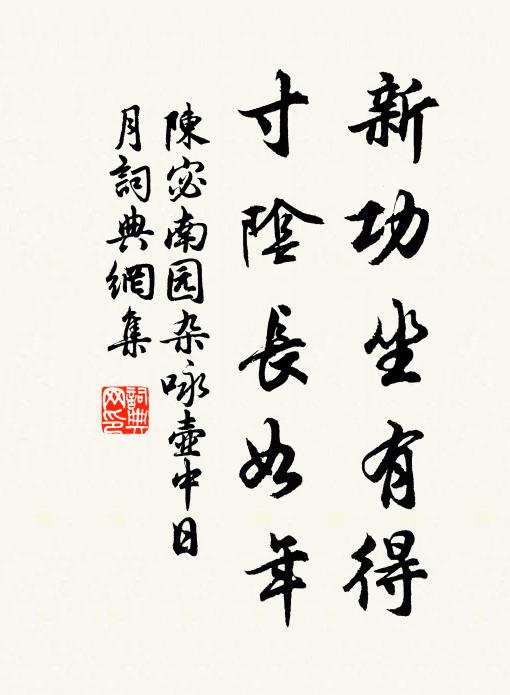 新功坐有得
寸陰長如年
陳宓南园杂咏壺中日
月詞典網集
詞典
网印